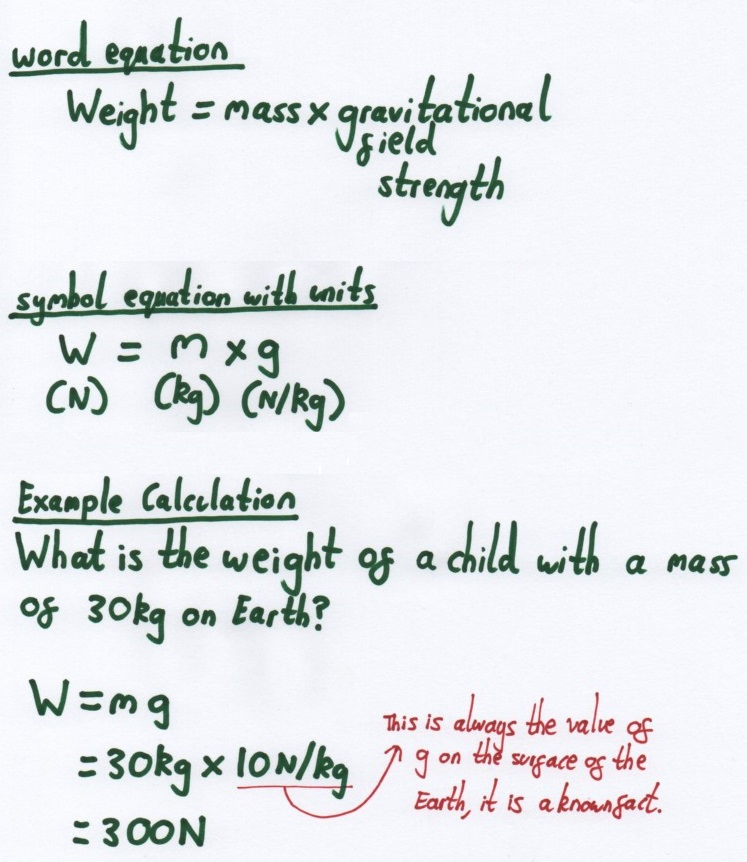 word equation
Weight = mass x gravitational
field
strength
symbol equation with units
W = m x g
(N) (kg) (N/kg)
Example Calculation
What is the weight of a child with a mass
of 30kg on Earth?
W = mg
= 30kg x 10N/kg
= 300N
This is always the value of
g on the surface of the
Earth, it is a known fact.